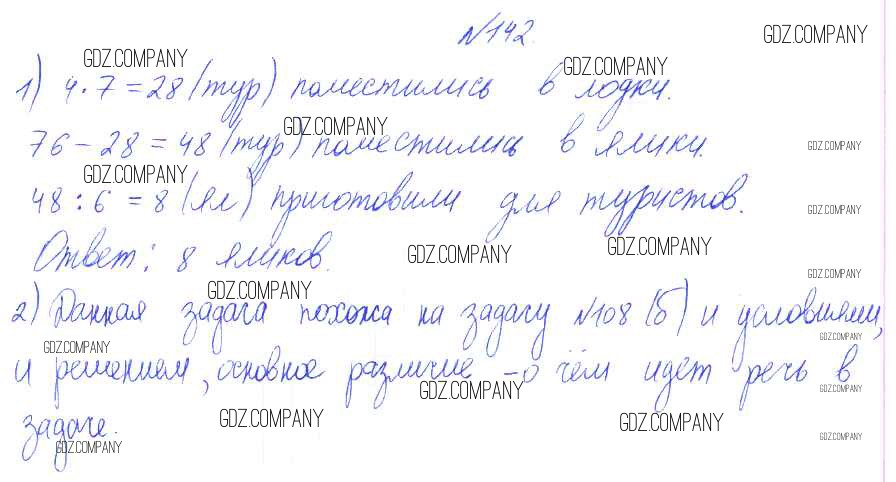 №142.
GDZ.COMPANY
GDZ.COMPANY
GDZ.COMPANY
1) 4·7=28 (тур) поместились в лодки.
GDZ.COMPANY
76-28=48 (тур) поместились в ялики.
GDZ.COMPANY
GDZ.COMPANY
48:6=8 (ял) приготовили для туристов.
GDZ.COMPANY
Ответ: 8 яликов.
GDZ.COMPANY
GDZ.COMPANY
GDZ.COMPANY
GDZ.COMPANY
2) Данная задача похожа на задачу №108 (б) и условиями,
GDZ.COMPANY
GDZ.COMPANY
и решением, основное различие - о чём идет речь в
GDZ.COMPANY
GDZ.COMPANY
GDZ.COMPANY
GDZ.COMPANY
задаче.
GDZ.COMPANY
GDZ.COMPANY